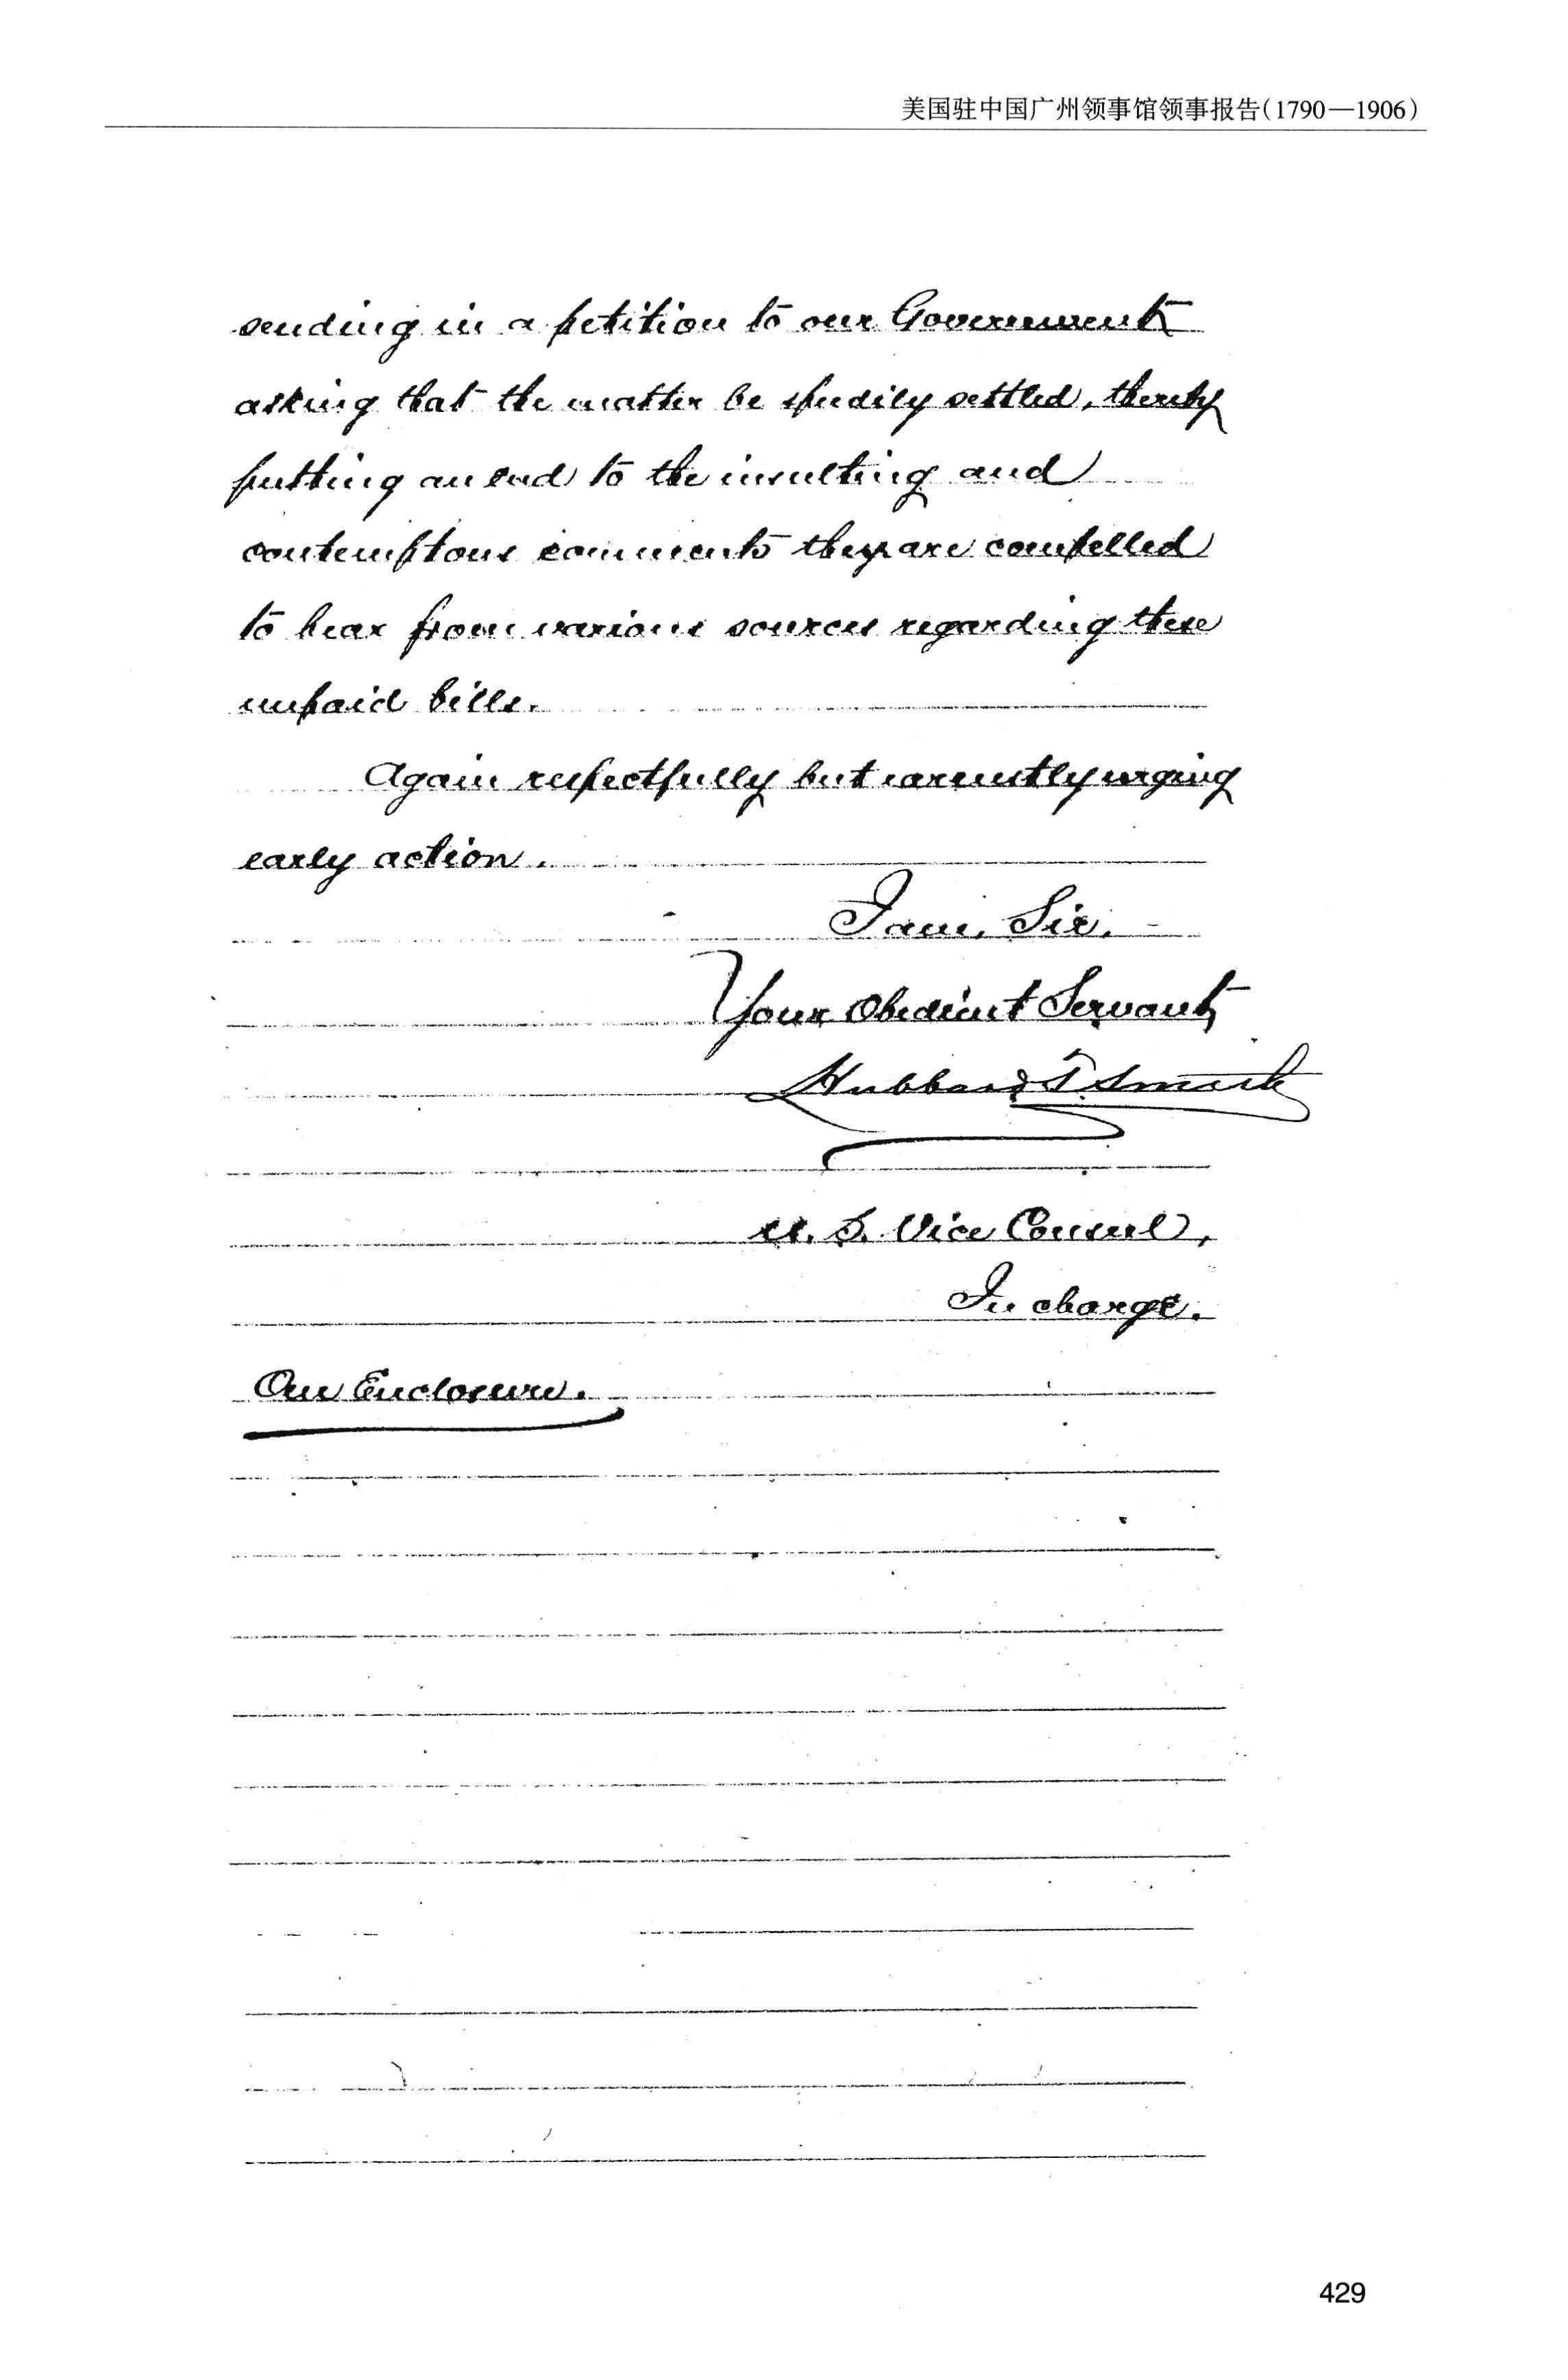 美国驻中国广州领事馆领事报告(1790—1906)
sending in a petition to our Government
asking that the matter be speedily settled, thereby
putting an end to the insulting and
contemptous comments they are compelled
to hear from various sources regarding these
unpaid bills.
Again respectfully but earnestly urging
early action.
I am, Sir,
Your Obedient Servant
Hubbard T. Smith
U. S. Vice Consul,
In charge.
One Enclosure.
429